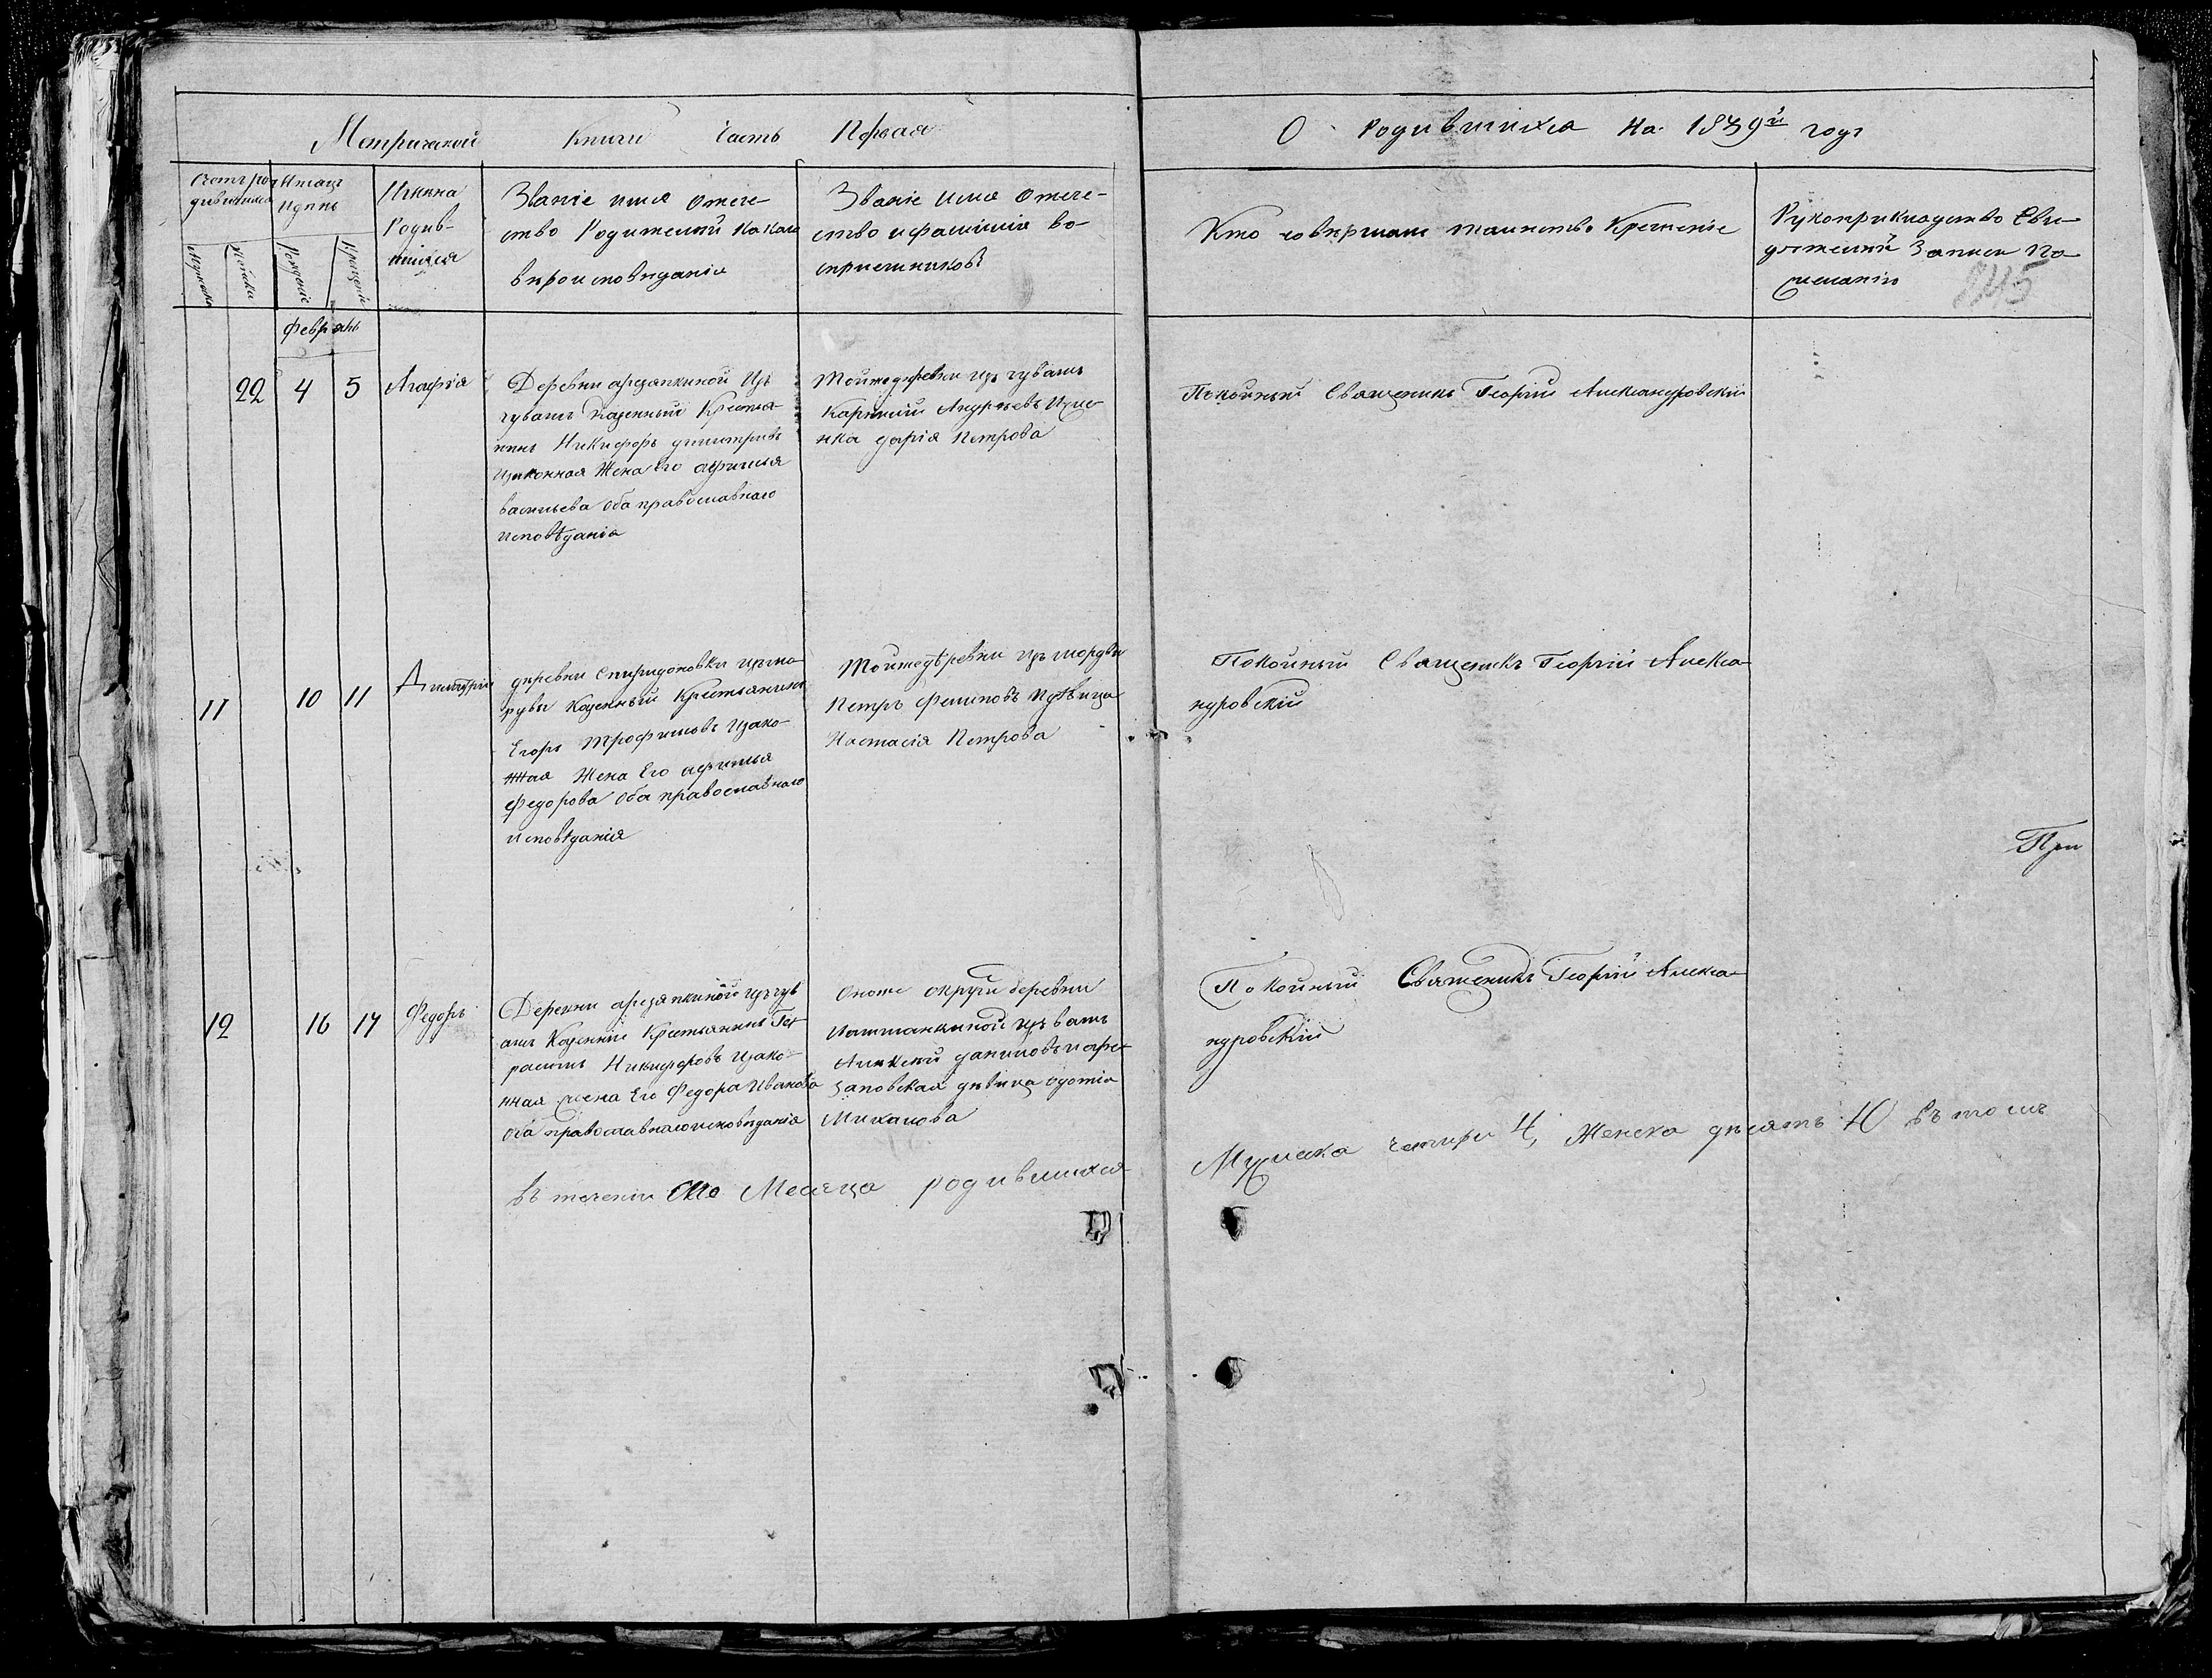 Метрической Книги Часть Первая
О Родившихся На 1839й годъ
Счетъ родившихся
Мужеска
Женска
Месяцъ и день
Рожденіе
Крещеніе
Имена
Родив-
шихся
Званіе имя отече-
ство Родителей какаго
вероисповеданія
Званіе имя отече-
ство и фамилія во-
сприемниковъ
Кто совершалъ таинство Крещеніе
Рукоприкладство Сви-
детелей Записи По
желанію
245
февраль
22 4 5 Агафія
Деревни арезяпкиной изъ
чувашъ Казенный Крестья-
нинъ Никифоръ димитріевъ
Изаконная Жена Его афимья
васильева оба православнаго
исповѣданія
Тойже деревни изъ чувашъ
Карпий Андреевъ Изже-
нка дарія Петрова
Покойный Священикъ Георгій Александровскій
11 10 11 Димитрій
деревни Спиридоновки измо-
рдвы Казенный Крестьянинъ
Егоръ Трофимовъ Изако-
нная Жена Его афимья
федорова оба православнаго
исповѣданія
Тойже деревни изъ мордвы
Петръ филиповъ Идѣвица
Настасія Петрова
Покойный Священикъ Георгій Алекса-
ндровскій
При
12 16 17 Федоръ
Деревни арезяпкиной изъ чув
ашъ Казенній Крестьянинъ Гер
расимъ Никифоровъ Изако-
нная жена Его Федора Иванова
оба православнаго исповеданія
Оноже округи деревни
изъ вашъ
Алексей даниловъ иаре-
заповская дѣвица одотіа
Михаилова
Покойный Священикъ Георгій Алекса-
ндровскій
Въ теченіи Сего Месяца родившихся
Мужеска четыре 4, Женска десять 10 въ томъ